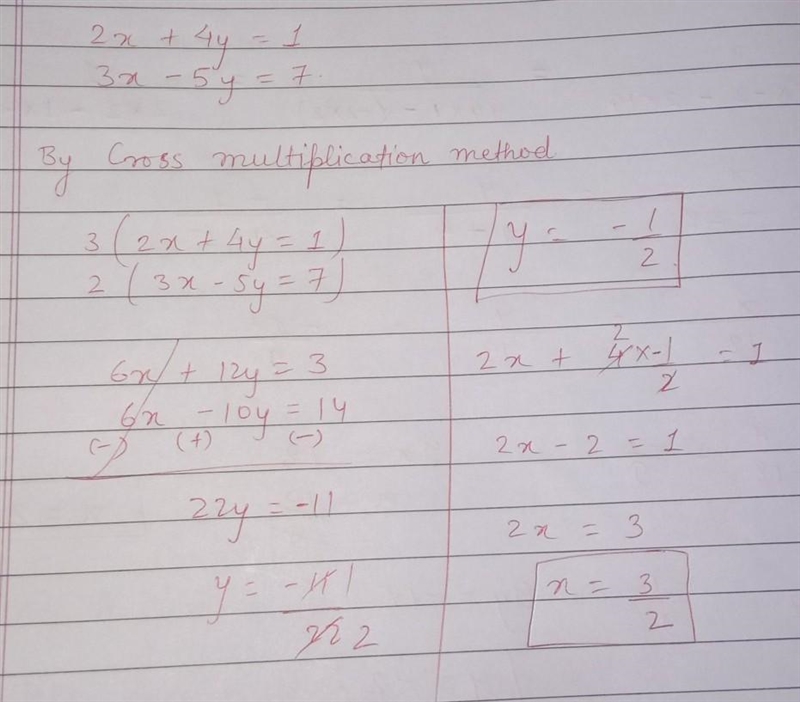 2x + 4y = 1
3x - 5y = 7.
By Cross multiplication method
3 (2x + 4y = 1)
2 (3x - 5y = 7)
6x + 12y = 3
6x - 10y = 14
(-) (+) (-)
22y = -11
y = -11 1
22 2
y = -1
2
2
2x + 4x-1 = 1
2
2x - 2 = 1
2x = 3
x = 3
2